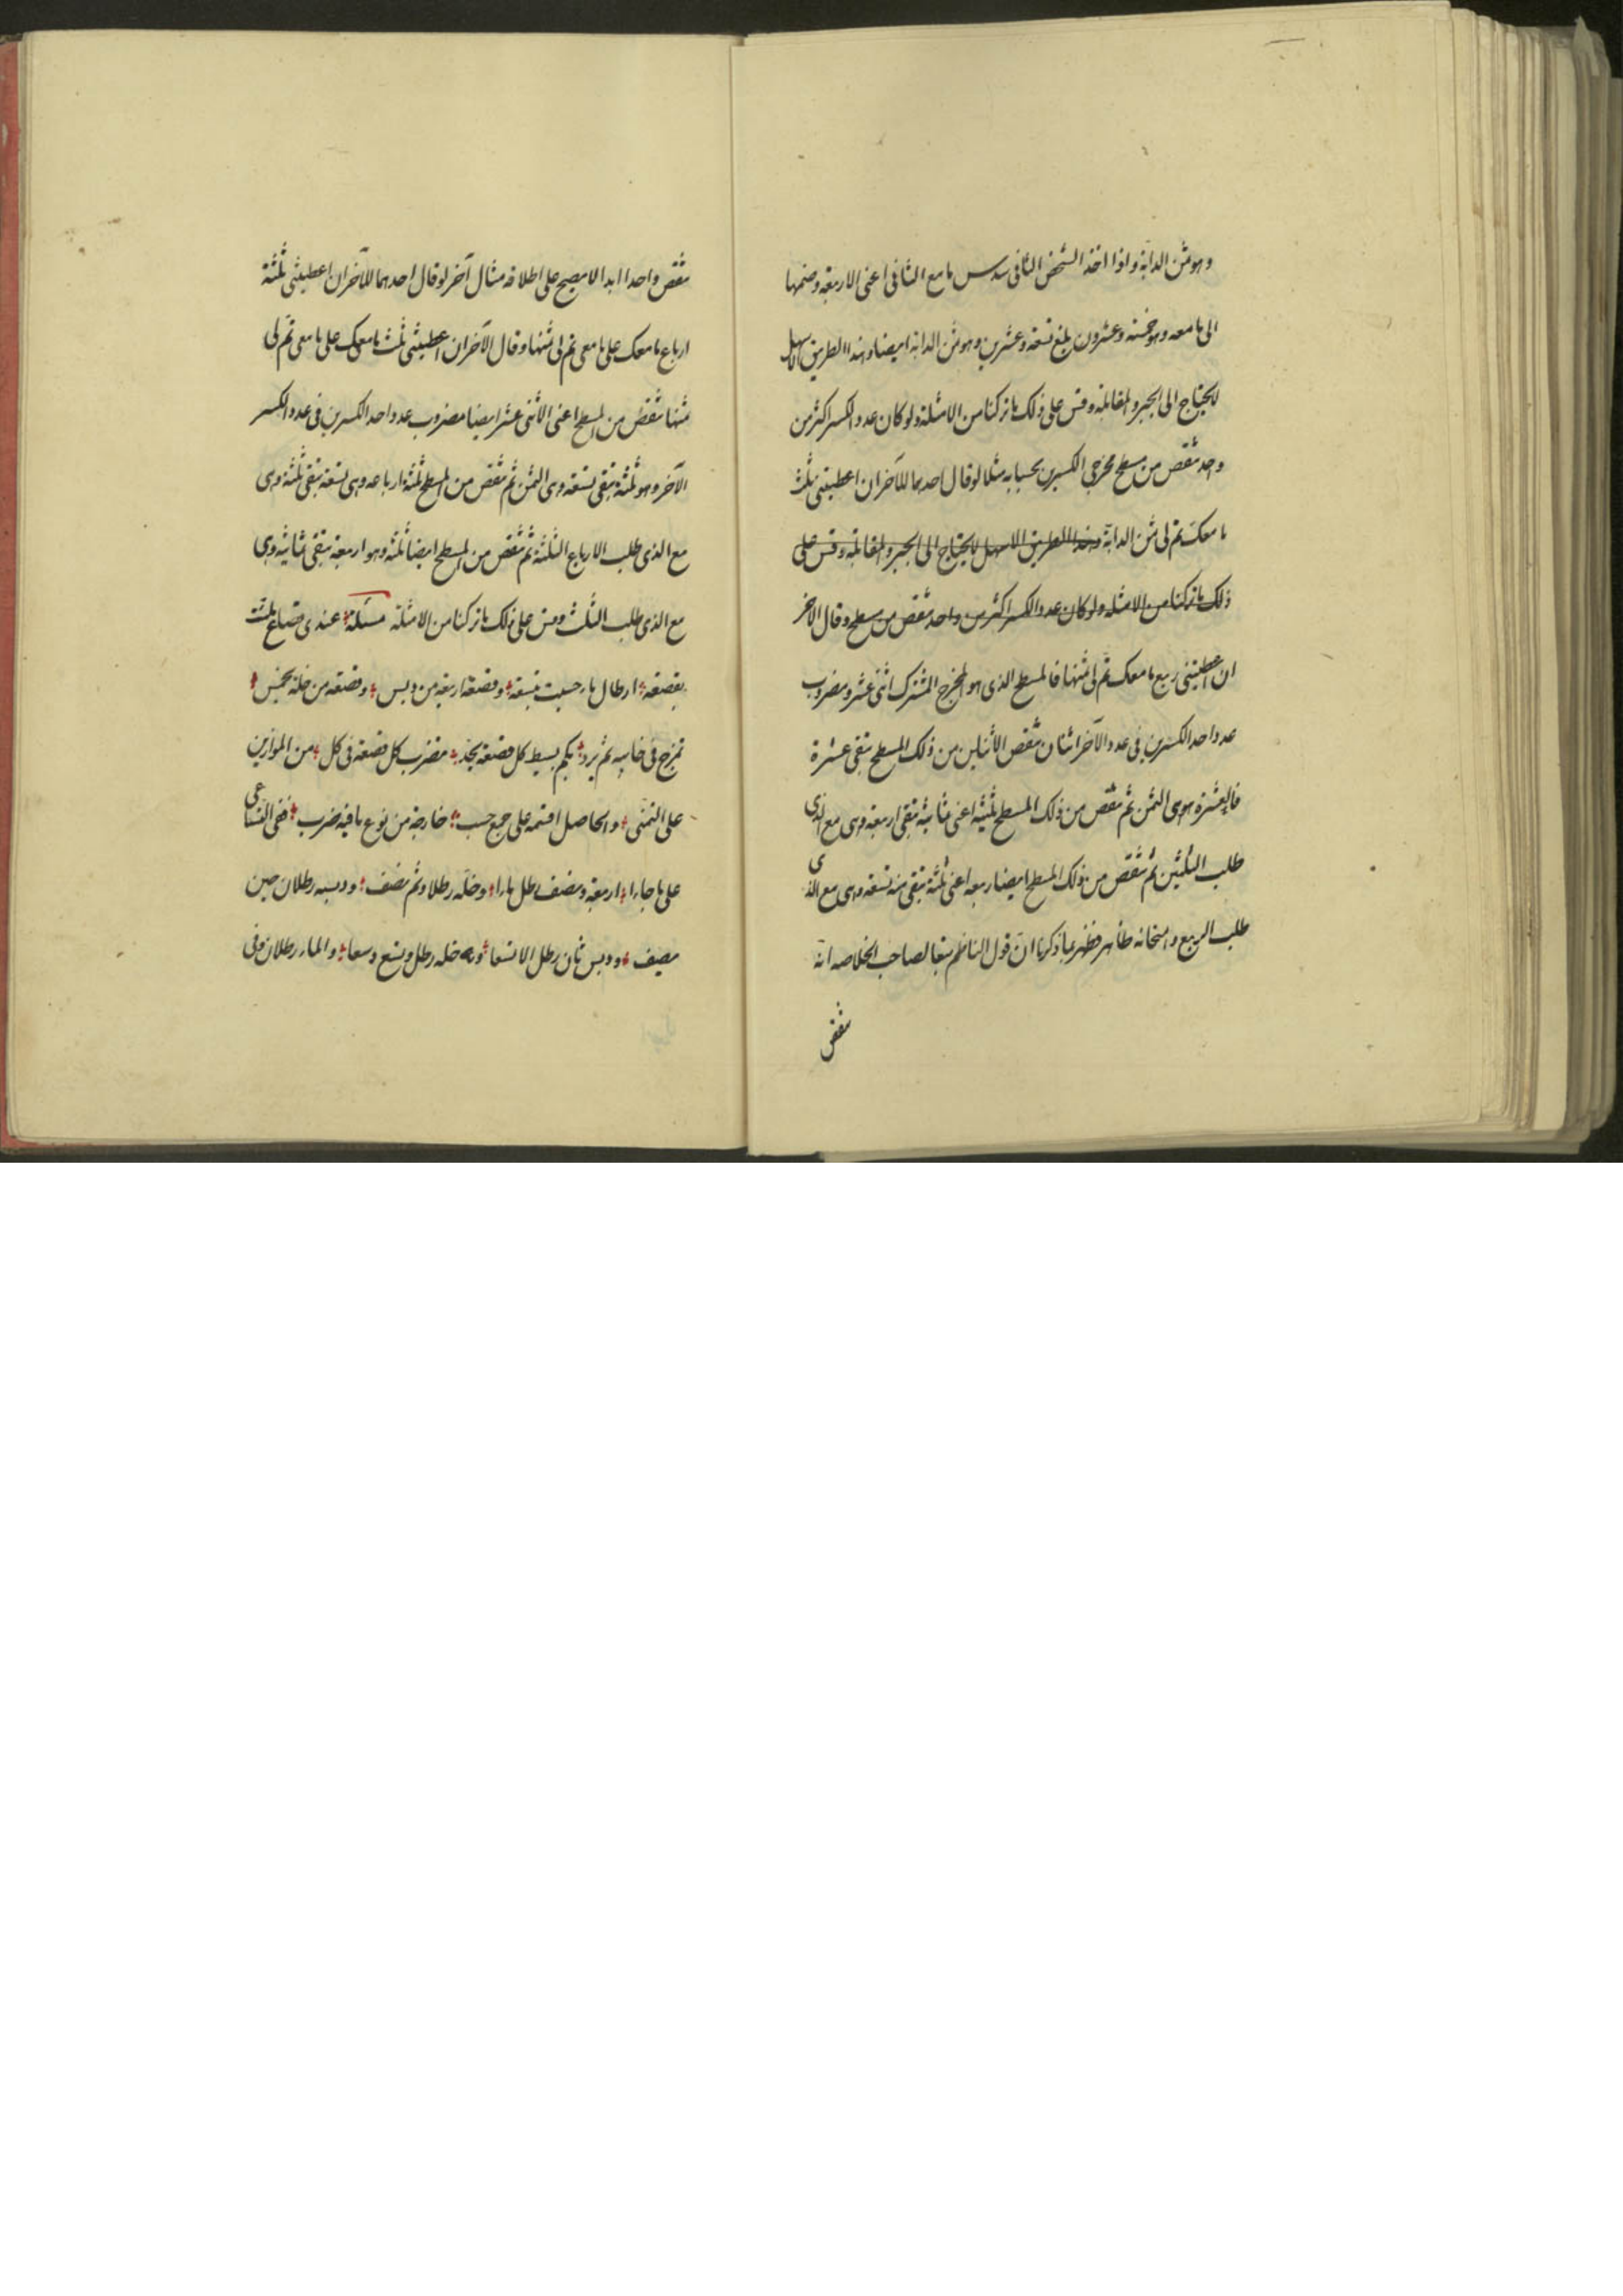 وهو ثمن الدابة واذا اخذ الشخص الثانى سدس ما مع الثانى اعنى الاربعة وضمها
الى ما معه وهو خمسة وعشرون بلغ تسعة وعشرين وهو ثمن الدابة ايضا وهذا الطريق الاسهل
لا يحتاج الى الجبر والمقابلة وقس على ذلك ما تركنا من الامثلة ولو كان عدد الكسر اكثر من
واحد تنقص من مسطح مخرجى الكسرين بحسابه مثلا لو قال احدهما للآخر ان اعطيتنى ثلث
ما معك تم لى ثمن الدابة وهذا الطريق الاسهل لا يحتاج الى الجبر والمقابلة وقس على
ذلك ما تركنا من الامثلة ولو كان عدد الكسر اكثر من واحد تنقص من مسطح وقال الاخر
ان اعطيتنى ربع ما معك تم لى ثمنها فالمسطح الذى هو المخرج المشترك اثنى عشر ومضروب
عدد احد الكسرين فى عدد الآخر اثنان تنقص الاثنين من ذلك المسطح تبقى عشرة
فالعشرة هى الثمن ثم تنقص من ذلك المسطح ثلثيه اعنى ثمانية تبقى اربعة وهى مع الذى
طلب الثلثين ثم تنقص من ذلك المسطح ايضا ربعه اعنى ثلثة تبقى منه تسعة وهى مع الذى
طلب الربع وامتحانه ظاهر فظهر بما ذكرنا ان قول الناظم تبعا لصاحب الخلاصه انه
تنقص
تنقص واحدا ابدا لا يصح على اطلاقه مثال آخر لو قال احدهما للآخر ان اعطيتنى ثلثة
ارباع ما معك على ما معى تم لى ثمنها وقال الآخر ان اعطيتنى ثلث ما معك على ما معى تم لى
ثمنها تنقص من المسطح اعنى الاثنى عشر ايضا مضروب عدد احد الكسرين فى عدد الكسر
الآخر وهو ثلثة تبقى تسعة وهى الثمن ثم تنقص من المسطح ثلثة ارباعه وهى تسعة تبقى ثلثة وهى
مع الذى طلب الارباع الثلثة ثم تنقص من المسطح ايضا ثلثه وهو اربعة تبقى ثمانية وهى
مع الذى طلب الثلث وقس على ذلك ما تركنا من الامثلة مسئلة عندى قصاع ثلثت
بقصعة ارطال ماء حسبت بتسعة وقصعة اربعة من دبس وقصعة من خلة بخمس
تمزج فى خابيه ثم يرد بكم بسيط كل قصعة يجد مضرب كل قصعة فى كل من الموازين
على التمنى والحاصل اقسمه على جمع حسب خارجة من نوع ما فيه ضرب ففى التساعى
على ما جاءا اربعة ونصف رطل ماءا وخله رطلا وثم نصف ودبسه رطلان حين
يصف ودبس ثان رطل الا تسعا وخله رطل وتسع وسعا والماء رطلان وفى